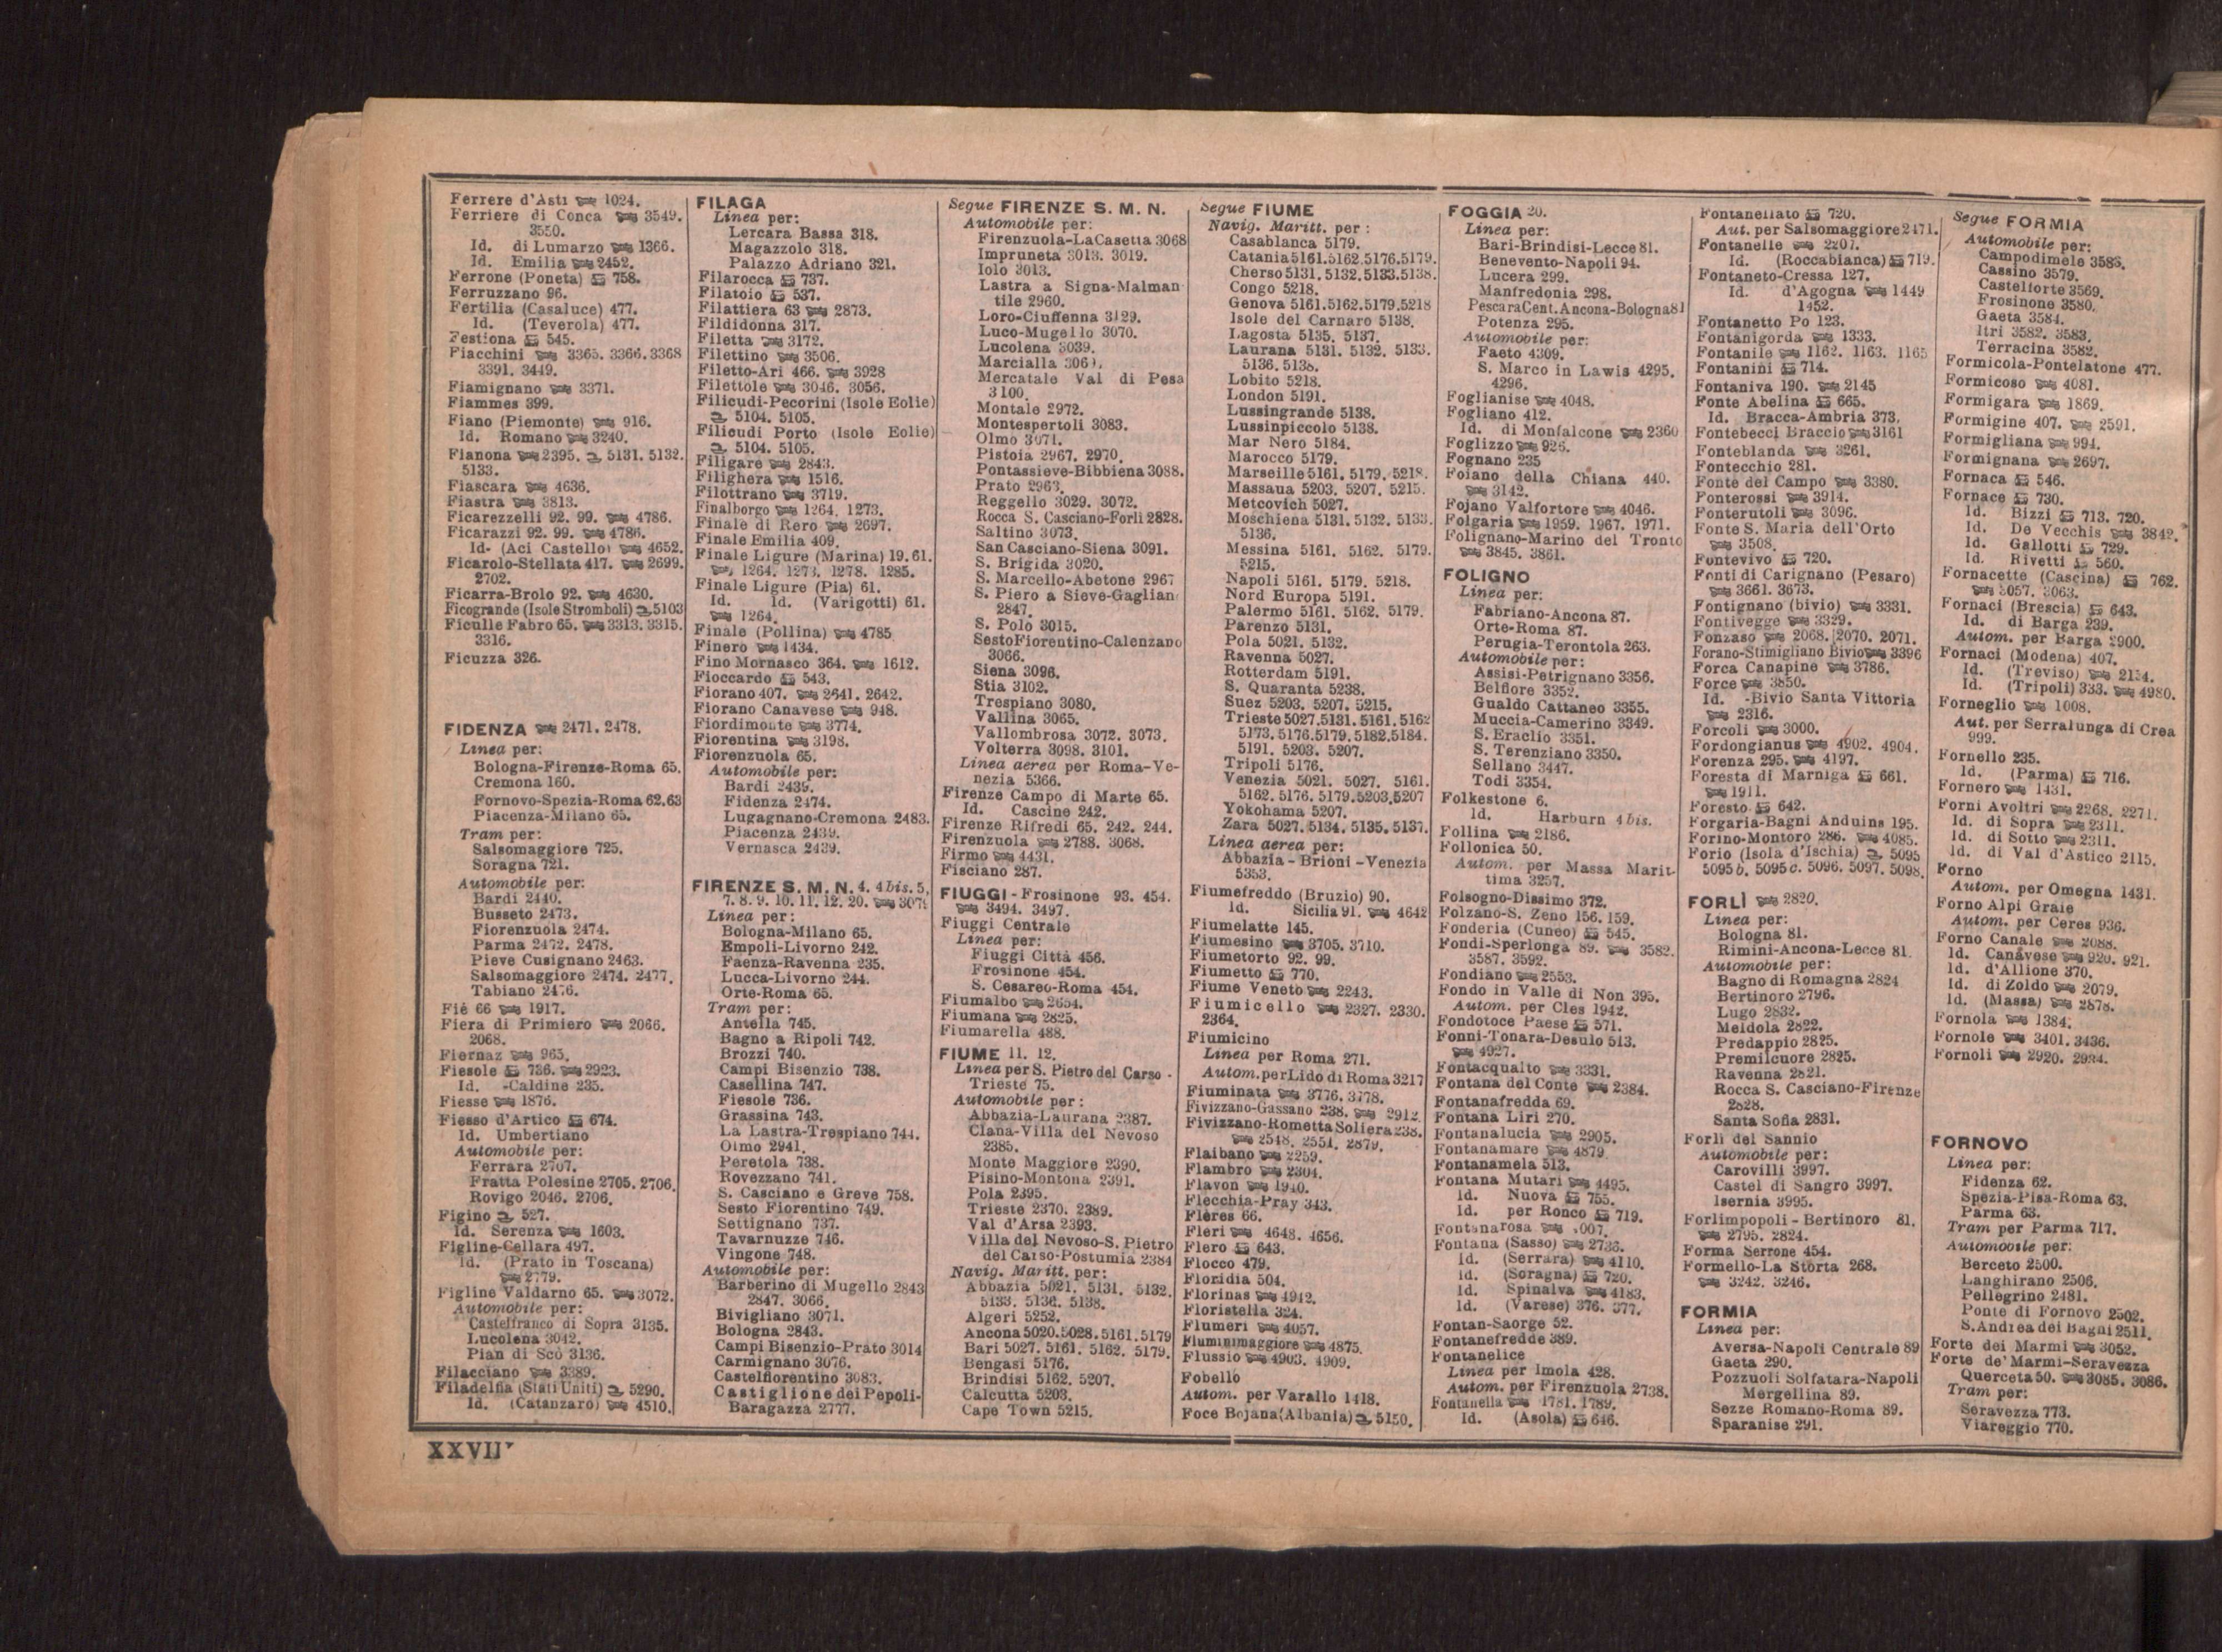 Ferrere d'Asti 1024.
Ferriere di Conca 3549.
3550.
Id. di Lumarzo 1366.
Id. Emilia 2452.
Ferrone (Poneta) 758.
Ferruzzano 96.
Fertilia (Casaluce) 477.
Id. (Teverola) 477.
Festiona 545.
Fiacchini 3365. 3366. 3368
3391. 3449.
Fiamignano 3371.
Fiammes 399.
Fiano (Piemonte) 916.
Id. Romano 3240.
Fianona 2395. 5131. 5132.
5133.
Fiascara 4636.
Fiastra 3813.
Ficarezzelli 92. 99. 4786.
Ficarazzi 92. 99. 4786.
Id. (Aci Castello) 4652.
Ficarolo-Stellata 417. 2699.
2702.
Ficarra-Brolo 92. 4630.
Ficogrande (Isole Stromboli) 5103
Ficulle Fabro 65. 3313. 3315.
3316.
Ficuzza 326.
FIDENZA 2471. 2478.
Linea per:
Bologna-Firenze-Roma 65.
Cremona 160.
Fornovo-Spezia-Roma 62.63
Piacenza-Milano 65.
Tram per:
Salsomaggiore 725.
Soragna 721.
Automobile per:
Bardi 2440.
Busseto 2473.
Fiorenzuola 2474.
Parma 2472. 2478.
Pieve Cusignano 2463.
Salsomaggiore 2474. 2477.
Tabiano 2476.
Fiè 66 1917.
Fiera di Primiero 2066.
2068.
Fiernaz 965.
Fiesole 736. 2923.
Id. -Caldine 235.
Fiesse 1876.
Fiesso d'Artico 674.
Id. Umbertiano
Automobile per:
Ferrara 2707.
Fratta Polesine 2705. 2706.
Rovigo 2046. 2706.
Figino 527.
Id. Serenza 1603.
Figline-Cellara 497.
Id. (Prato in Toscana)
2779.
Figline Valdarno 65. 3072.
Automobile per:
Castelfranco di Sopra 3135.
Lucolena 3042.
Pian di Scò 3136.
Filacciano 3389.
Filadelfia (Stati Uniti) 5290.
Id. (Catanzaro) 4510.
FILAGA
Linea per:
Lercara Bassa 318.
Magazzolo 318.
Palazzo Adriano 321.
Filarocca 737.
Filatoio 537.
Filattiera 63 2873.
Fildidonna 317.
Filetta 3172.
Filettino 3506.
Filetto-Ari 466. 3928
Filettole 3046. 3056.
Filicudi-Pecorini (Isole Eolie)
5104. 5105.
Filicudi Porto (Isole Eolie)
5104. 5105.
Filigare 2843.
Filighera 1516.
Filottrano 3719.
Finalborgo 1264. 1273.
Finale di Rero 2697.
Finale Emilia 409.
Finale Ligure (Marina) 19. 61.
1264. 1273. 1278. 1285.
Finale Ligure (Pia) 61.
Id. Id. (Varigotti) 61.
1264.
Finale (Pollina) 4785
Finero 1434.
Fino Mornasco 364. 1612.
Fioccardo 543.
Fiorano 407. 2641. 2642.
Fiorano Canavese 948.
Fiordimonte 3774.
Fiorentina 3198.
Fiorenzuola 65.
Automobile per:
Bardi 2439.
Fidenza 2474.
Lugagnano-Cremona 2483.
Piacenza 2439.
Vernasca 2439.
FIRENZE S. M. N. 4. 4bis. 5.
7. 8. 9. 10. 11. 12. 20.
Linea per:
Bologna-Milano 65.
Empoli-Livorno 242.
Faenza-Ravenna 235.
Lucca-Livorno 244.
Orte-Roma 65.
Tram per:
Antella 745.
Bagno a Ripoli 742.
Brozzi 740.
Campi Bisenzio 738.
Casellina 747.
Fiesole 736.
Grassina 743.
La Lastra-Trespiano 744.
Olmo 2941.
Peretola 738.
Rovezzano 741.
S. Casciano e Greve 758.
Sesto Fiorentino 749.
Settignano 737.
Tavarnuzze 746.
Vingone 748.
Automobile per:
Barberino di Mugello 2843
2847. 3066.
Bivigliano 3071.
Bologna 2843.
Campi Bisenzio-Prato 3014
Carmignano 3076.
Castelfiorentino 3083.
Castiglione dei Pepoli-
Baragazza 2777.
Segue FIRENZE S. M. N.
Automobile per:
Firenzuola-LaCasetta 3068
Impruneta 3013. 3019.
Iolo 3013.
Lastra a Signa-Malman
tile 2960.
Loro-Ciuffenna 3129.
Luco-Mugello 3070.
Lucolena 3039.
Marcialla
Mercatale Val di Pesa
3100.
Montale 2972.
Montespertoli 3083.
Olmo 3071.
Pistoia 2967. 2970.
Pontassieve-Bibbiena 3088.
Prato 2963.
Reggello 3029. 3072.
Rocca S. Casciano-Forlì 2828.
Saltino 3073.
San Casciano-Siena 3091.
S. Brigida 3020.
S. Marcello-Abetone 2967
S. Piero a Sieve-Gaglian
2847.
S. Polo 3015.
Sesto Fiorentino-Calenzano
3066.
Siena 3096.
Stia 3102.
Trespiano 3080.
Vallina 3065.
Vallombrosa 3072. 3073.
Volterra 3098. 3101.
Linea aerea per Roma-Ve-
nezia 5366.
Firenze Campo di Marte 65.
Id. Cascine 242.
Firenze Rifredi 65. 242. 244.
Firenzuola 2788. 3068.
Firmo 4431.
Fisciano 287.
FIUGGI - Frosinone 93. 454.
3494. 3497.
Fiuggi Centrale
Linea per:
Fiuggi Città 456.
Frosinone 454.
S. Cesareo-Roma 454.
Fiumalbo 2654.
Fiumana 2825.
Fiumarella 488.
FIUME 11. 12.
Linea per S. Pietro del Carso -
Trieste 75.
Automobile per:
Abbazia-Laurana 2387.
Clana-Villa del Nevoso
2385.
Monte Maggiore 2390.
Pisino-Montona 2391.
Pola 2395.
Trieste 2370. 2389.
Val d'Arsa 2393.
Villa del Nevoso-S. Pietro
del Carso-Postumia 2384
Navig. Maritt. per:
Abbazia 5021. 5131. 5132.
5133. 5136. 5138.
Algeri 5252.
Ancona 5020.5028.5161.5179
Bari 5027. 5161. 5162. 5179.
Bengasi 5176.
Brindisi 5162. 5207.
Calcutta 5203.
Cape Town 5215.
Segue FIUME
Navig. Maritt. per:
Casablanca 5179.
Catania 5161.5162.5176.5179.
Cherso 5131. 5132.5133.5138.
Congo 5218.
Genova 5161.5162.5179.5218
Isole del Carnaro 5138.
Lagosta 5135. 5137.
Laurana 5131. 5132. 5133.
5136. 5138.
Lobito 5218.
London 5191.
Lussingrande 5138.
Lussinpiccolo 5138.
Mar Nero 5184.
Marocco 5179.
Marseille 5161. 5179. 5218.
Massaua 5203. 5207. 5215.
Metcovich 5027.
Moschiena 5131. 5132. 5133.
5136.
Messina 5161. 5162. 5179.
5215.
Napoli 5161. 5179. 5218.
Nord Europa 5191.
Palermo 5161. 5162. 5179.
Parenzo 5131.
Pola 5021. 5132.
Ravenna 5027.
Rotterdam 5191.
S. Quaranta 5238.
Suez 5203. 5207. 5215.
Trieste 5027.5131.5161.5162
5173. 5176.5179.5182.5184.
5191. 5203. 5207.
Tripoli 5176.
Venezia 5021. 5027. 5161.
5162. 5176. 5179.5203.5207
Yokohama 5207.
Zara 5027.5134. 5135. 5137.
Linea aerea per:
Abbazia - Brioni - Venezia
5353.
Fiumefreddo (Bruzio) 90.
Id. Sicilia 91. 4642
Fiumelatte 145.
Fiumesino 3705. 3710.
Fiumetorto 92. 99.
Fiumetto 770.
Fiume Veneto 2243.
Fiumicello 2327. 2330.
2364.
Fiumicino
Linea per Roma 271.
Autom. per Lido di Roma 3217
Fiuminata 3776. 3778.
Fivizzano-Gassano 238. 2912
Fivizzano-Rometta Soliera 238.
2548. 2551. 2879.
Flaibano 2259.
Flambro 2304.
Flavon 1940.
Flecchia-Pray 343.
Flères 66.
Fleri 4648. 4656.
Flero 643.
Flocco 479.
Floridia 504.
Florinas 4942.
Floristella 324.
Flumeri 4057.
Fluminimaggiore 4875.
Flussio 4903. 4909.
Fobello
Autom. per Varallo 1418.
Foce Bojana (Albania) 5150.
FOGGIA 20.
Linea per:
Bari-Brindisi-Lecce 81.
Benevento-Napoli 94.
Lucera 299.
Manfredonia 298.
Pescara Cent. Ancona-Bologna 81
Potenza 295.
Automobile per:
Faeto 4309.
S. Marco in Lawis 4295.
4296.
Foglianise 4048.
Fogliano 412.
Id. di Monfalcone 2360
Foglizzo 926.
Fognano 235
Foiano della Chiana 440.
3142.
Fojano Valfortore 4046.
Folgaria 1959. 1967. 1971.
Folignano-Marino del Tronto
3845. 3861.
FOLIGNO
Linea per:
Fabriano-Ancona 87.
Orte-Roma 87.
Perugia-Terontola 263.
Automobile per:
Assisi-Petrignano 3356.
Belfiore 3352.
Gualdo Cattaneo 3355.
Muccia-Camerino 3349.
S. Eraclio 3351.
S. Terenziano 3350.
Sellano 3447.
Todi 3354.
Folkestone 6.
Id. Harburn 4 bis.
Follina 2186.
Follonica 50.
Autom. per Massa Marit-
tima 3257.
Folsogno-Dissimo 372.
Folzano-S. Zeno 156. 159.
Fonderia (Cuneo) 545.
Fondi-Sperlonga 89. 3582.
3587. 3592.
Fondiano 2553.
Fondo in Valle di Non 395.
Autom. per Cles 1942.
Fondotoce Paese 571.
Fonni-Tonara-Desulo 513.
4927.
Fontacqualto 3331.
Fontana del Conte 2384.
Fontanafredda 69.
Fontana Liri 270.
Fontanalucia 2905.
Fontanamare 4879
Fontanamela 513.
Fontana Mutari 4495.
Id. Nuova 755.
Id. per Ronco 719.
Fontanarosa
Fontana (Sasso) 2736.
Id. (Serrara) 4110.
Id. (Soragna) 720.
Id. Spinalva 4183.
Id. (Varese) 376. 377.
Fontan-Saorge 52.
Fontanefredde 389.
Fontanelice
Linea per Imola 428.
Autom. per Firenzuola 2738.
Fontanella 1781. 1789.
Id. (Asola) 646.
Fontanellato 720.
Aut. per Salsomaggiore 2471.
Fontanelle 2207.
Id. (Roccabianca) 719.
Fontaneto-Cressa 127.
Id. d'Agogna 1449
1452.
Fontanetto Po 123.
Fontanigorda 1333.
Fontanile 1162. 1163. 1165
Fontanini 714.
Fontaniva 190. 2145
Fonte Abelina 665.
Id. Bracca-Ambria 373.
Fontebecci Braccio 3161
Fonteblanda 3261.
Fontecchio 281.
Fonte del Campo 3380.
Ponterossi 3914.
Fonterutoli 3096.
Fonte S. Maria dell'Orto
3508.
Fontevivo 720.
Fonti di Carignano (Pesaro)
3661. 3673.
Fontignano (bivio) 3331.
Fontivegge 3329.
Fonzaso 2068. 2070. 2071.
Forano-Stimigliano Bivio 3396
Forca Canapine 3786.
Force 3850.
Id. -Bivio Santa Vittoria
2316.
Forcoli 3000.
Fordongianus 4902. 4904.
Forenza 295. 4197.
Foresta di Marniga 661.
1911.
Foresto 642.
Forgaria-Bagni Anduins 195.
Forino-Montoro 286. 4085.
Forio (Isola d'Ischia) 5095
5095 b. 5095 c. 5096. 5097. 5098.
FORLÌ 2820.
Linea per:
Bologna 81.
Rimini-Ancona-Lecce 81.
Automobile per:
Bagno di Romagna 2824
Bertinoro 2796.
Lugo 2832.
Meldola 2822.
Predappio 2825.
Premilcuore 2825.
Ravenna 2821.
Rocca S. Casciano-Firenze
2828.
Santa Sofia 2831.
Forlì del Sannio
Automobile per:
Carovilli 3997.
Castel di Sangro 3997.
Isernia 3995.
Forlimpopoli - Bertinoro 81.
2795. 2824.
Forma Serrone 454.
Formello-La Storta 268.
3242. 3246.
FORMIA
Linea per:
Aversa-Napoli Centrale 89
Gaeta 290.
Pozzuoli Solfatara-Napoli
Mergellina 89.
Sezze Romano-Roma 89.
Sparanise 291.
Segue FORMIA
Automobile per:
Campodimele 3586.
Cassino 3579.
Castelforte 3569.
Frosinone 3580.
Gaeta 3584.
Itri 3582. 3583.
Terracina 3582.
Formicola-Pontelatone 477.
Formicoso 4081.
Formigara 1869.
Formigine 407. 2591.
Formigliana 994.
Formignana 2697.
Fornaca 546.
Fornace 730.
Id. Bizzi 713. 720.
Id. De Vecchis 3842.
Id. Gallotti 729.
Id. Rivetti 560.
Fornacette (Cascina) 762.
3057. 3063.
Fornaci (Brescia) 643.
Id. di Barga 239.
Autom. per Barga 2900.
Fornaci (Modena) 407.
Id. (Treviso) 2134.
Id. (Tripoli) 333. 4980.
Forneglio 1008.
Aut. per Serralunga di Crea
999.
Fornello 235.
Id. (Parma) 716.
Fornero 1431.
Forni Avoltri 2268. 2271.
Id. di Sopra 2311.
Id. di Sotto 2311.
Id. di Val d'Astico 2115.
Forno
Autom. per Omegna 1431.
Forno Alpi Graie
Autom. per Ceres 936.
Forno Canale 2088.
Id. Canavese 920. 921.
Id. d'Allione 370.
Id. di Zoldo 2079.
Id. (Massa) 2878.
Fornola 1384.
Fornole 3401. 3436.
Fornoli 2920. 2934.
FORNOVO
Linea per:
Fidenza 62.
Spezia-Pisa-Roma 63.
Parma 63.
Tram per Parma 717.
Automobile per:
Berceto 2500.
Langhirano 2506.
Pellegrino 2481.
Ponte di Fornovo 2502.
S. Andrea dei Bagni 2511.
Forte dei Marmi 3052.
Forte de' Marmi-Seravezza
Querceta 50. 3085. 3086.
Tram per:
Seravezza 773.
Viareggio 770.